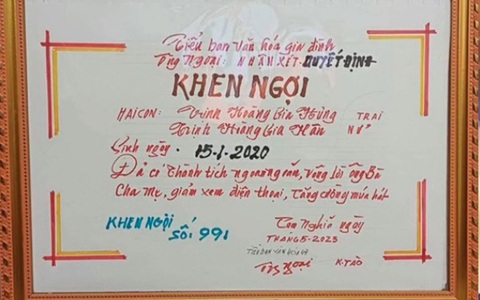 Tiểu ban văn hóa gia đình
Ông Ngoại: NHẬN XÉT QUYẾT ĐỊNH
KHEN NGỢI
HAI CON: Trịnh Hoàng Gia Hưng TRAI
Trịnh Hoàng Gia Hân NỮ
Sinh ngày: 15-1-2020
Đã có thành tích ngoan ngoãn, vâng lời ông Bà
Cha mẹ, giảm xem điện thoại, tăng cường múa hát
KHEN NGỢI
SỐ: 991
Tân Nghĩa ngày
THÁNG 5-2023
TIỂU BAN VĂN HÓA GĐ
Ông Ngoại K.TÀO